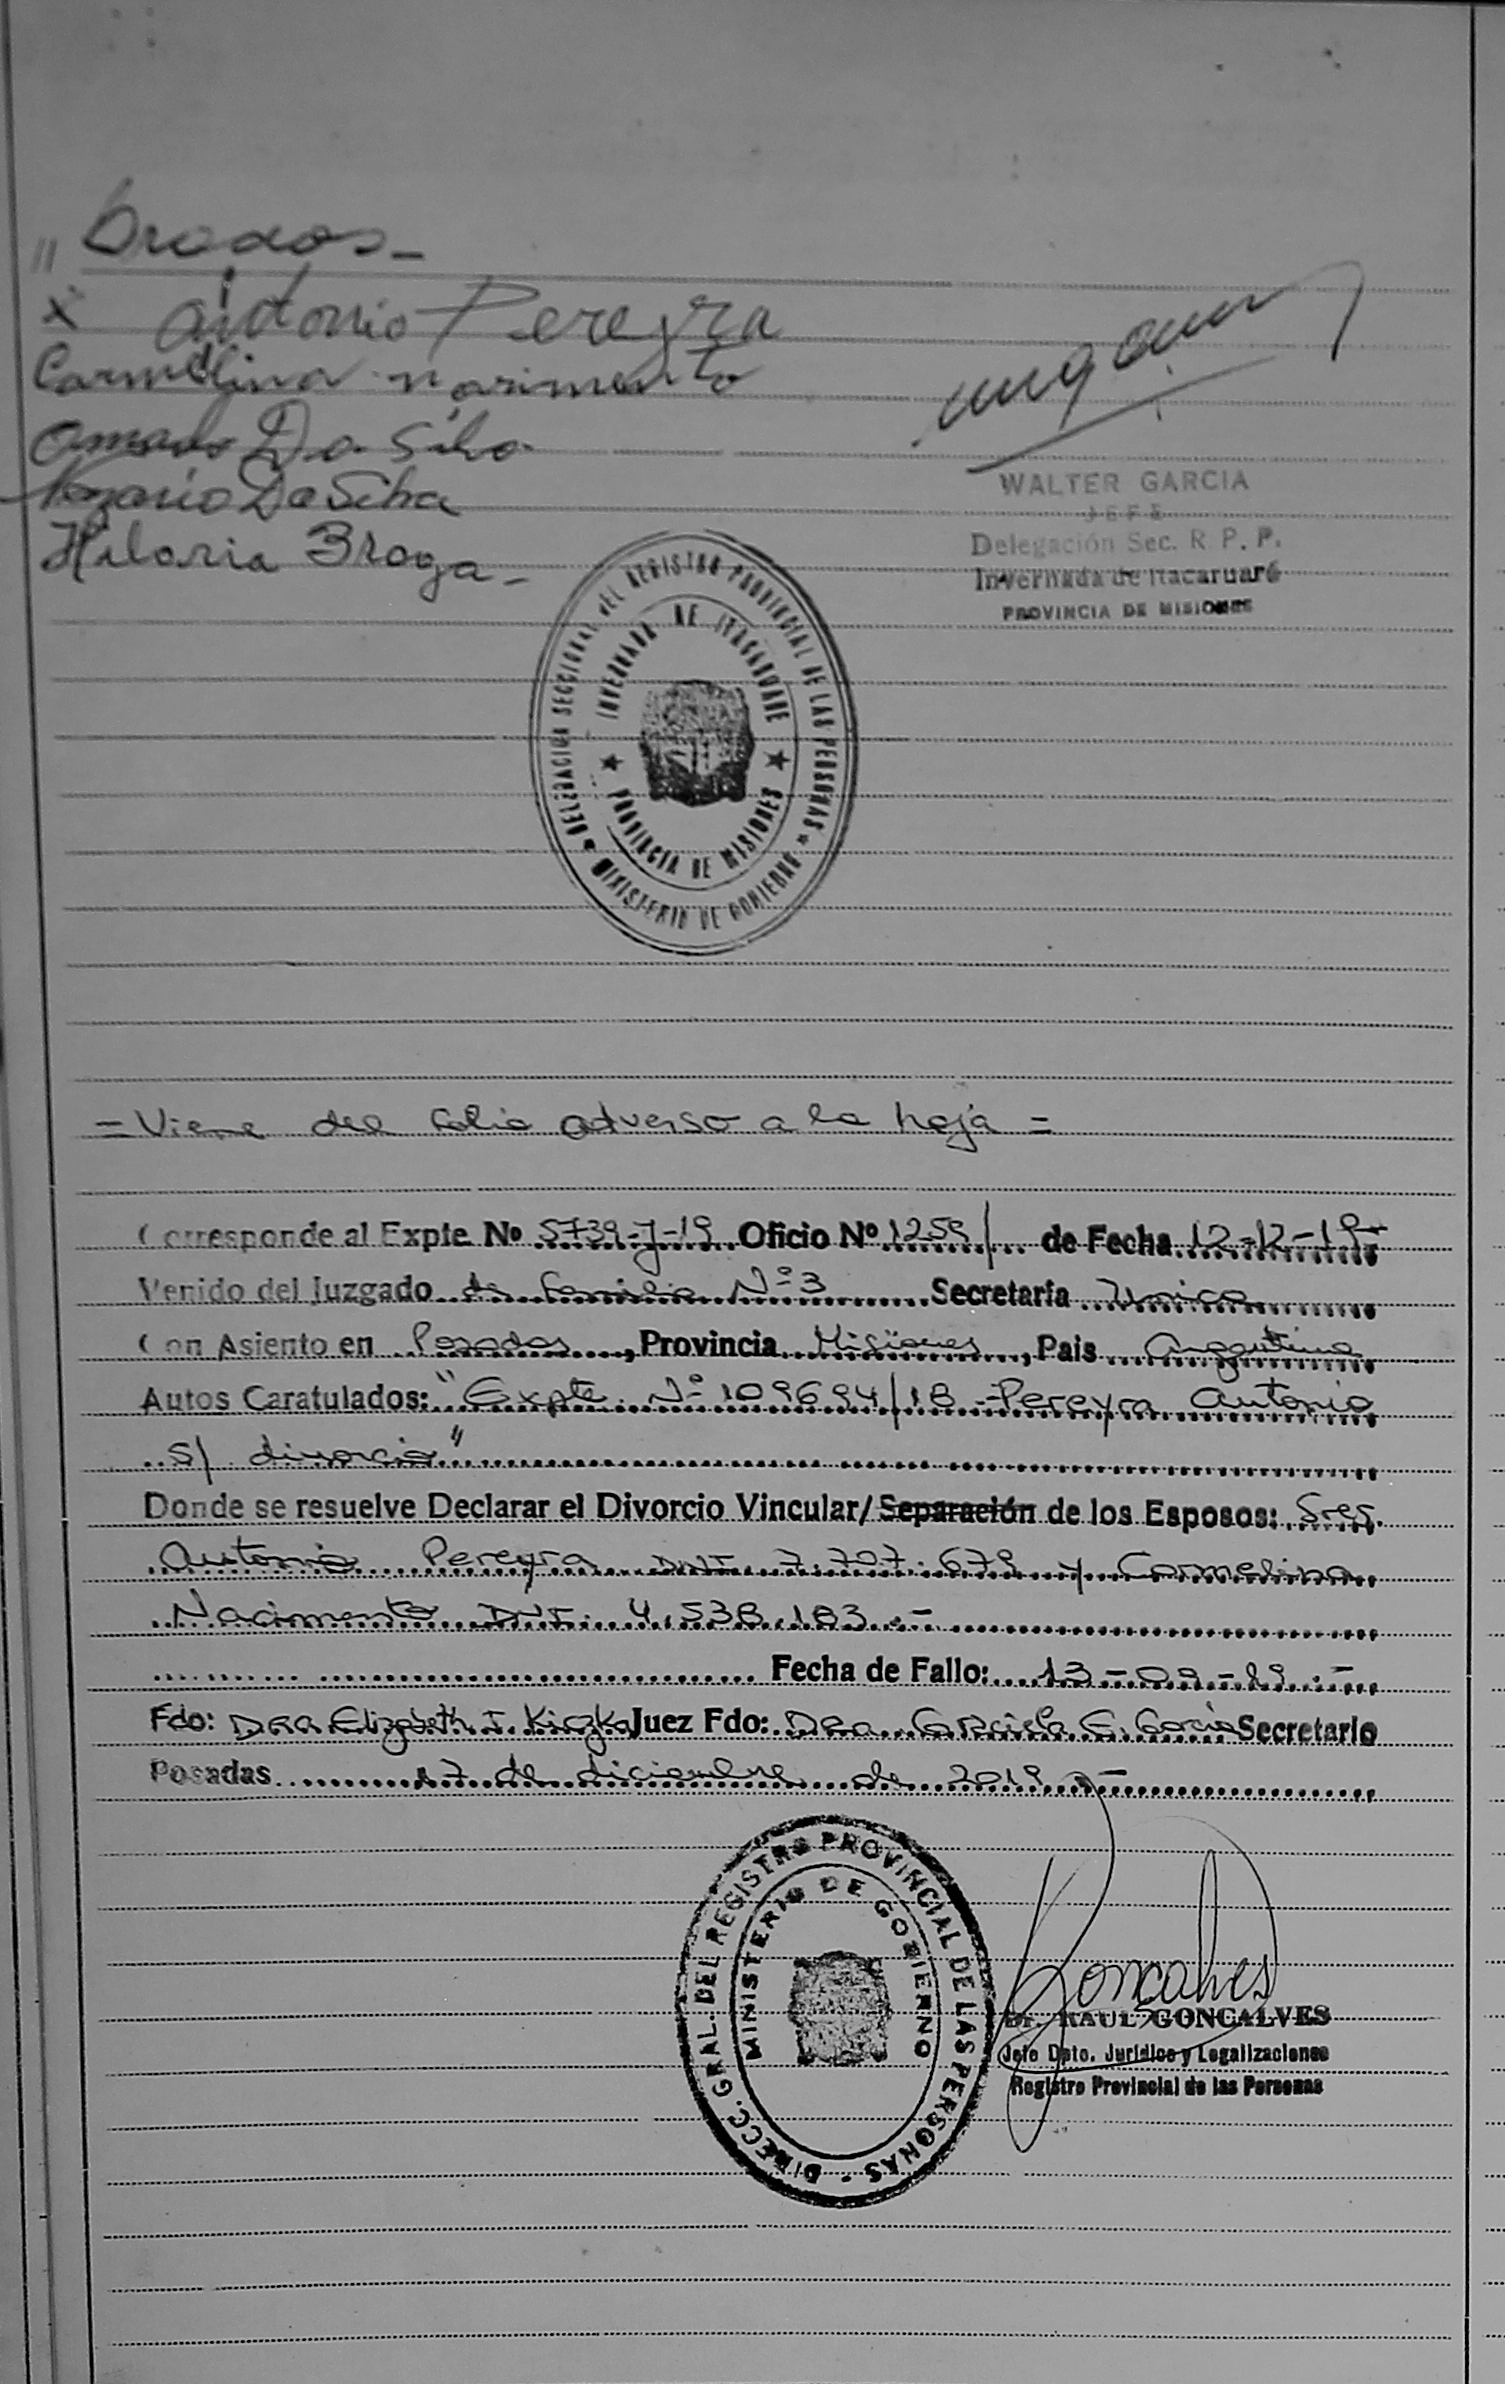 " brados-
x Antonio Pereyra
Carmelina Narimento
Amado Da Silva
Nazario Da Silva
Hilaria Braga-
WALTER GARCIA
JEFE
Delegación Sec. R. P. P.
Invernada de Itacaruaré
PROVINCIA DE MISIONES
DELEGACION SECCIONAL DEL REGISTRO PROVINCIAL DE LAS PERSONAS
INVERNADA DE ITACARUARE
PROVINCIA DE MISIONES
MINISTERIO DE GOBIERNO
= Viene del folio adverso a la hoja =
Corresponde al Expte Nº 5739-J-19 Oficio Nº 1259/ de Fecha 12-12-19-
Venido del Juzgado de Familia Nº 3 Secretaría Unica
Con Asiento en Posadas, Provincia Misiones, Pais Argentina
Autos Caratulados: "Expte. Nº 109694/18 - Pereyra Antonio
s/ divorcio"
Donde se resuelve Declarar el Divorcio Vincular/Separación de los Esposos: Sres.
Antonio Pereyra DNI. 7.707.679 y Carmelina
Nacimento DNI. 4.538.183.-
Fecha de Fallo: 13-09-19.-
Fdo: Dra Elizabeth I. Kiczka Juez Fdo: Dra. Graciela E. Garcia Secretario
Posadas 17 de diciembre de 2019.-
DIRECC. GRAL. DEL REGISTRO PROVINCIAL DE LAS PERSONAS -
MINISTERIO DE GOBIERNO
Goncalves
Dr. RAUL GONCALVES
Jefe Dpto. Jurídico y Legalizaciones
Registro Provincial de las Personas